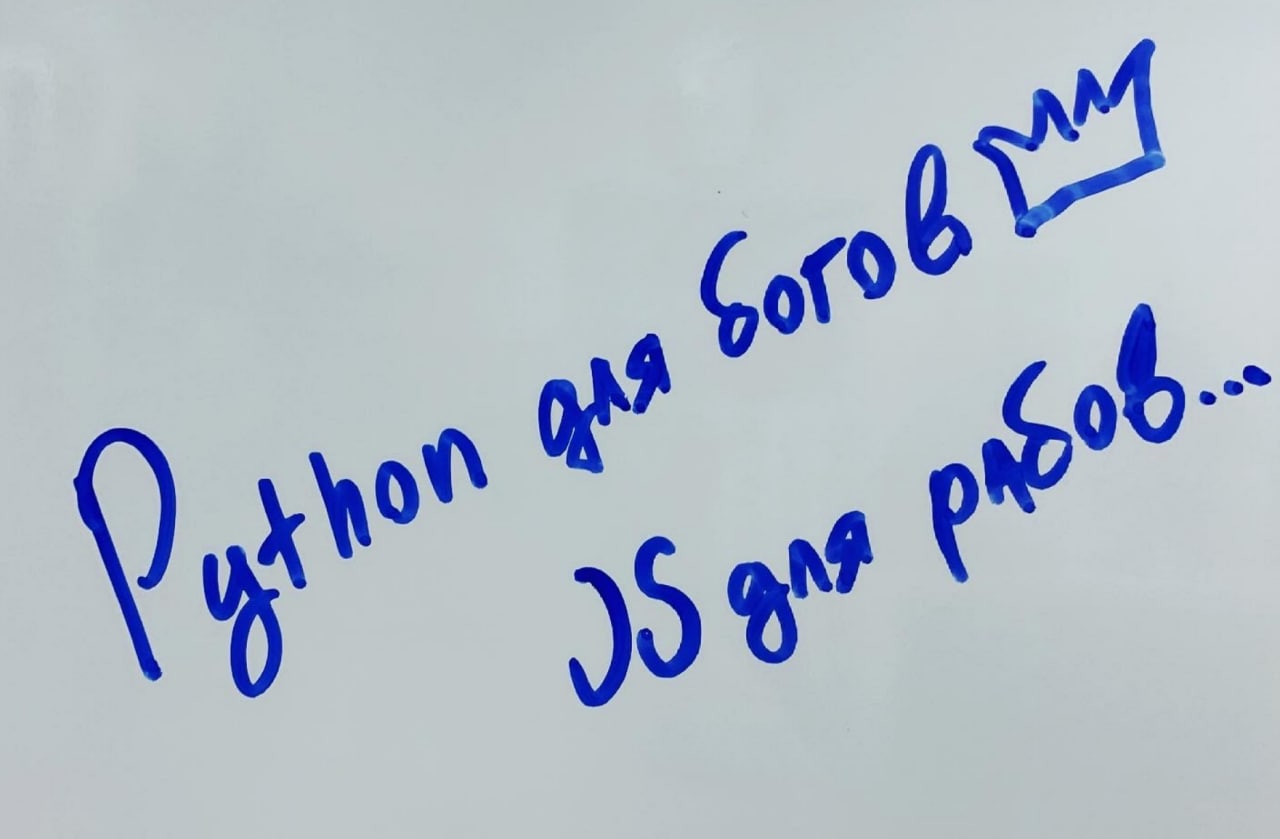 Python для богов
JS для рабов...